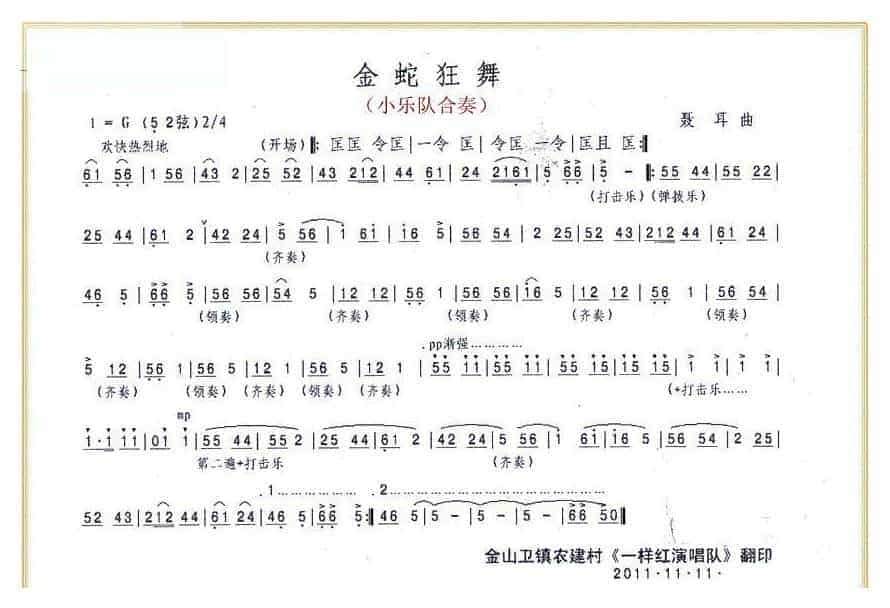 金蛇狂舞
（小乐队合奏）
1 = G (5 2弦) 2/4
聂 耳 曲
欢快热烈地
(开场) ‖: 匡匡 令匡 | 一令 匡 | 令匡 一令 | 匡且 匡 :‖
61 56 | 1 56 | 43 2 | 25 52 | 43 212 | 44 61 | 24 2161 | 5 66 | 5 - ‖: 55 44 | 55 22 |
(打击乐) (弹拨乐)
25 44 | 61 2 | 42 24 | 5 56 | i 6i | i6 5 | 56 54 | 2 25 | 52 43 | 212 44 | 61 24 |
(齐奏)
46 5 | 66 5 | 56 56 | 54 5 | 12 12 | 61 2 | 56 56 | i6 5 | 12 12 | 56 1 | 56 54 |
(领奏) (齐奏) (领奏) (齐奏) (领奏)
.pp渐强…………
5 12 | 56 1 | 56 5 | 12 1 | 56 5 | 12 1 | 55 11 | 55 11 | 55 15 | 55 15 | 1 1 |
(齐奏) (领奏) (齐奏) (领奏) (齐奏) (+打击乐……
mp
1·1 11 | 01 1 | 55 44 | 55 2 | 25 44 | 61 2 | 42 24 | 5 56 | 1 61 | i6 5 | 56 54 | 2 25 |
第二遍+打击乐 (齐奏)
.1…………… .2……………………………
52 43 | 212 44 | 61 24 | 46 5 | 66 5 :‖ 46 5 | 5 - | 5 - | 5 - | 66 50 ‖
金山卫镇农建村《一样红演唱队》翻印
2011·11·11·